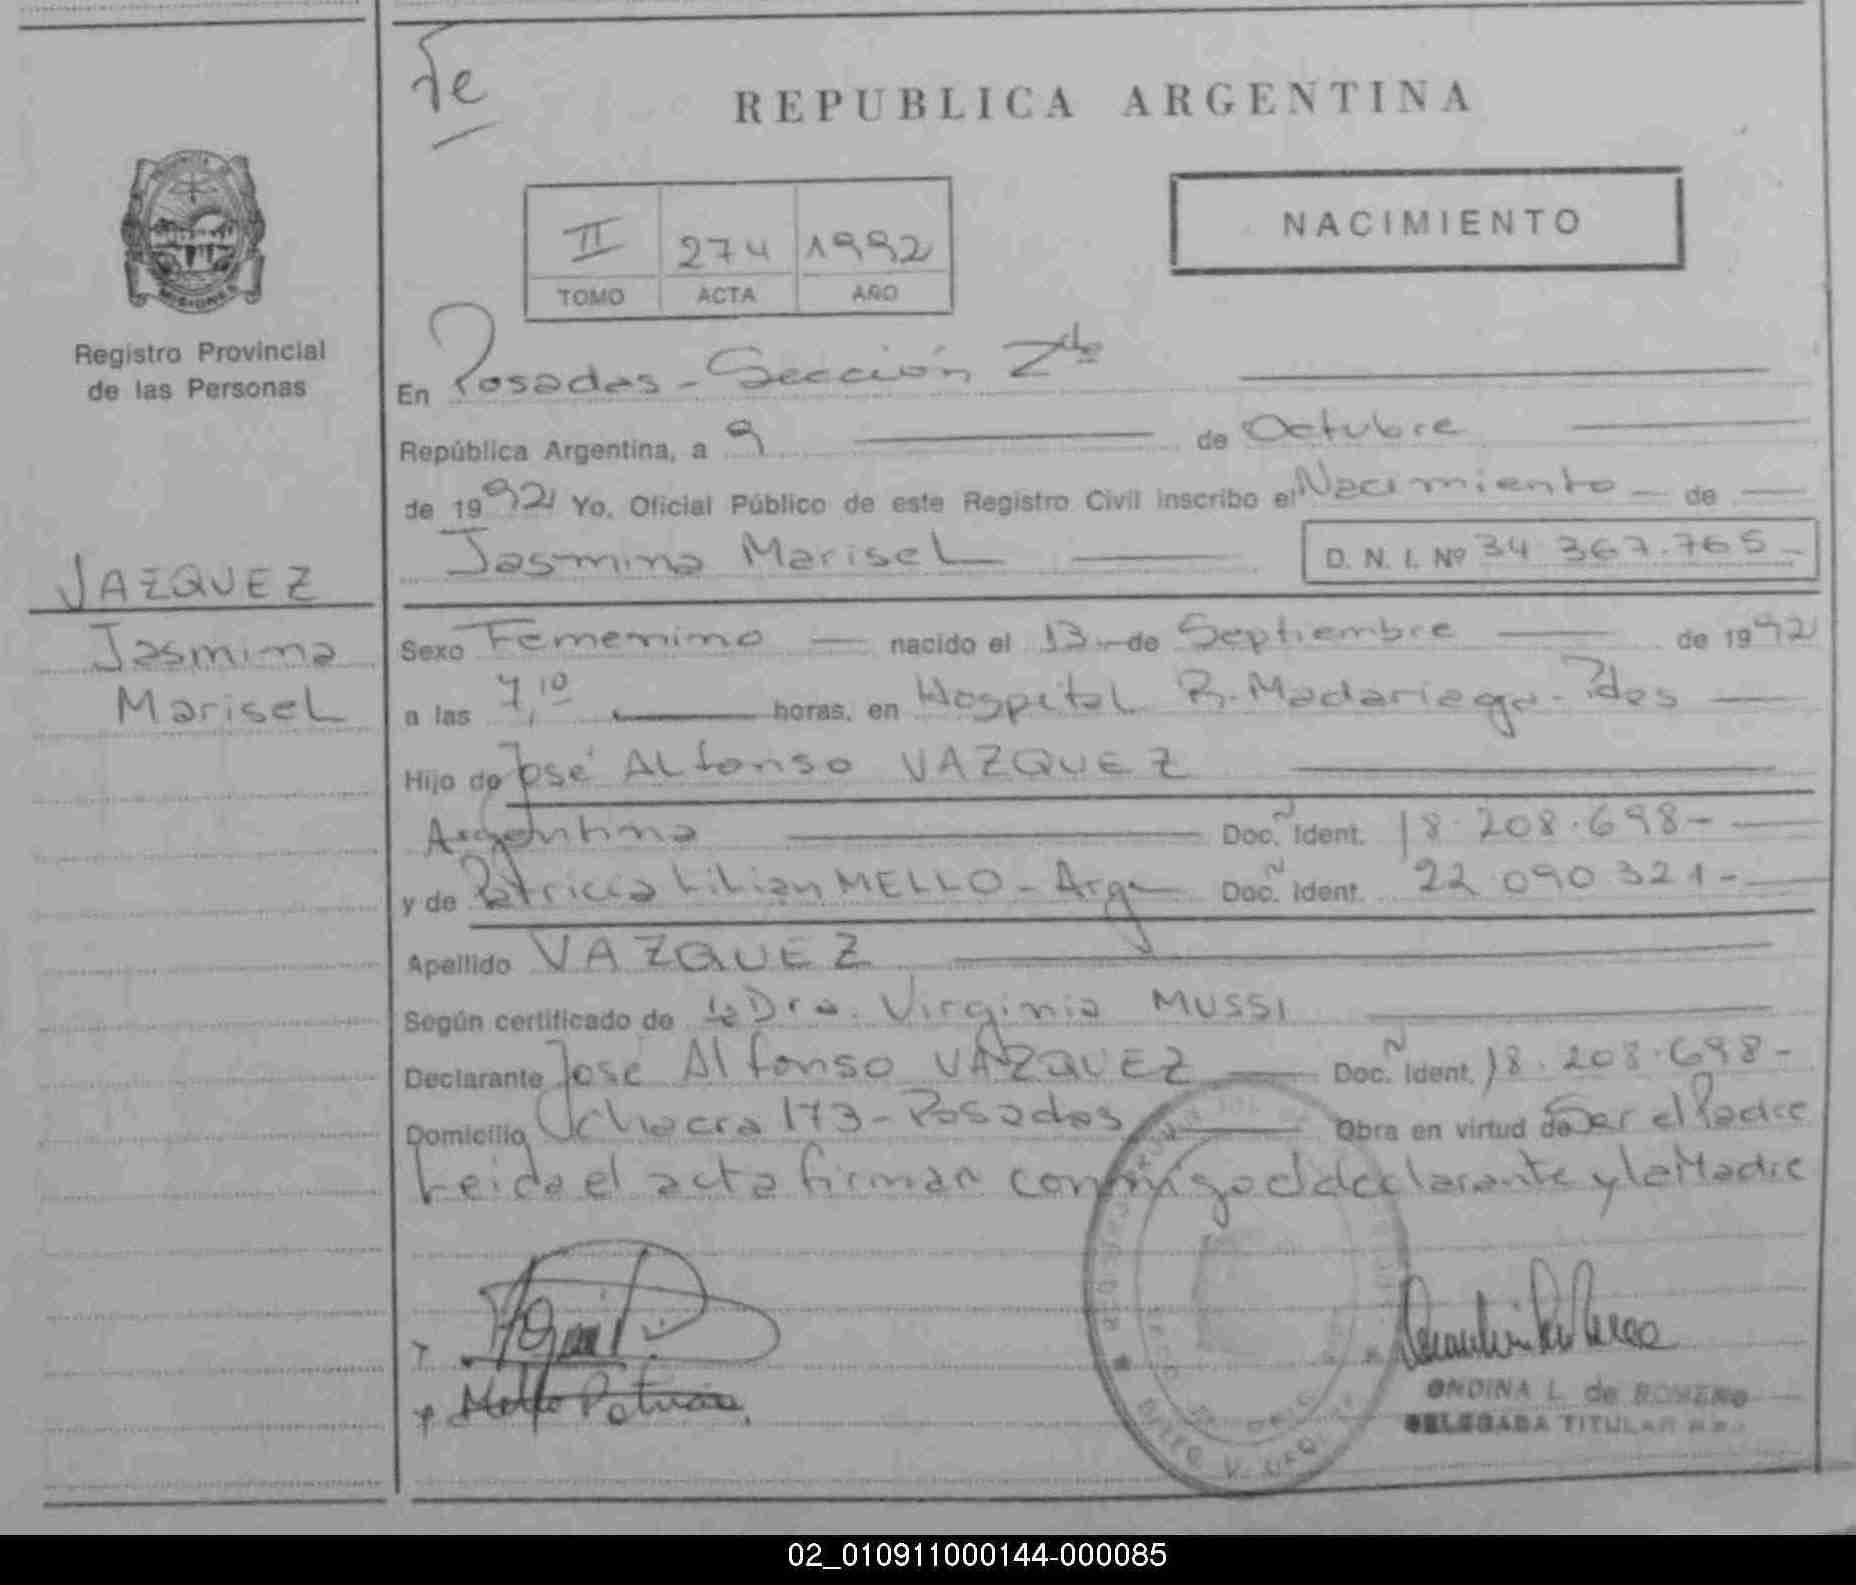 Te
REPUBLICA ARGENTINA
II 274 1992
TOMO ACTA AÑO
NACIMIENTO
MISIONES
Registro Provincial
de las Personas
VAZQUEZ
Jasmina
Marisel
En Posadas - Sección 2da
República Argentina, a 9 de Octubre
de 1992 Yo, Oficial Público de este Registro Civil inscribo el Nacimiento de
Jasmina Marisel D. N. I. Nº 34.367.765-
Sexo Femenino nacido el 13 de Septiembre de 1992
a las 7,10 horas, en Hospital R. Madariaga - Pdas
Hijo de José Alfonso VAZQUEZ
Argentina Doc. Ident. 18.208.698-
y de Patricia Lilian MELLO - Arg Doc. Ident. 22.090.321-
Apellido VAZQUEZ
Según certificado de la Dra. Virginia MUSSI
Declarante José Alfonso VAZQUEZ Doc. Ident. 18.208.698-
Domicilio Chacra 173 - Posadas Obra en virtud de Ser el Padre
Leida el acta firman conmigo el declarante y la Madre
Mello Patricia
ONDINA L. de ROMERO
DELEGADA TITULAR
02_010911000144-000085